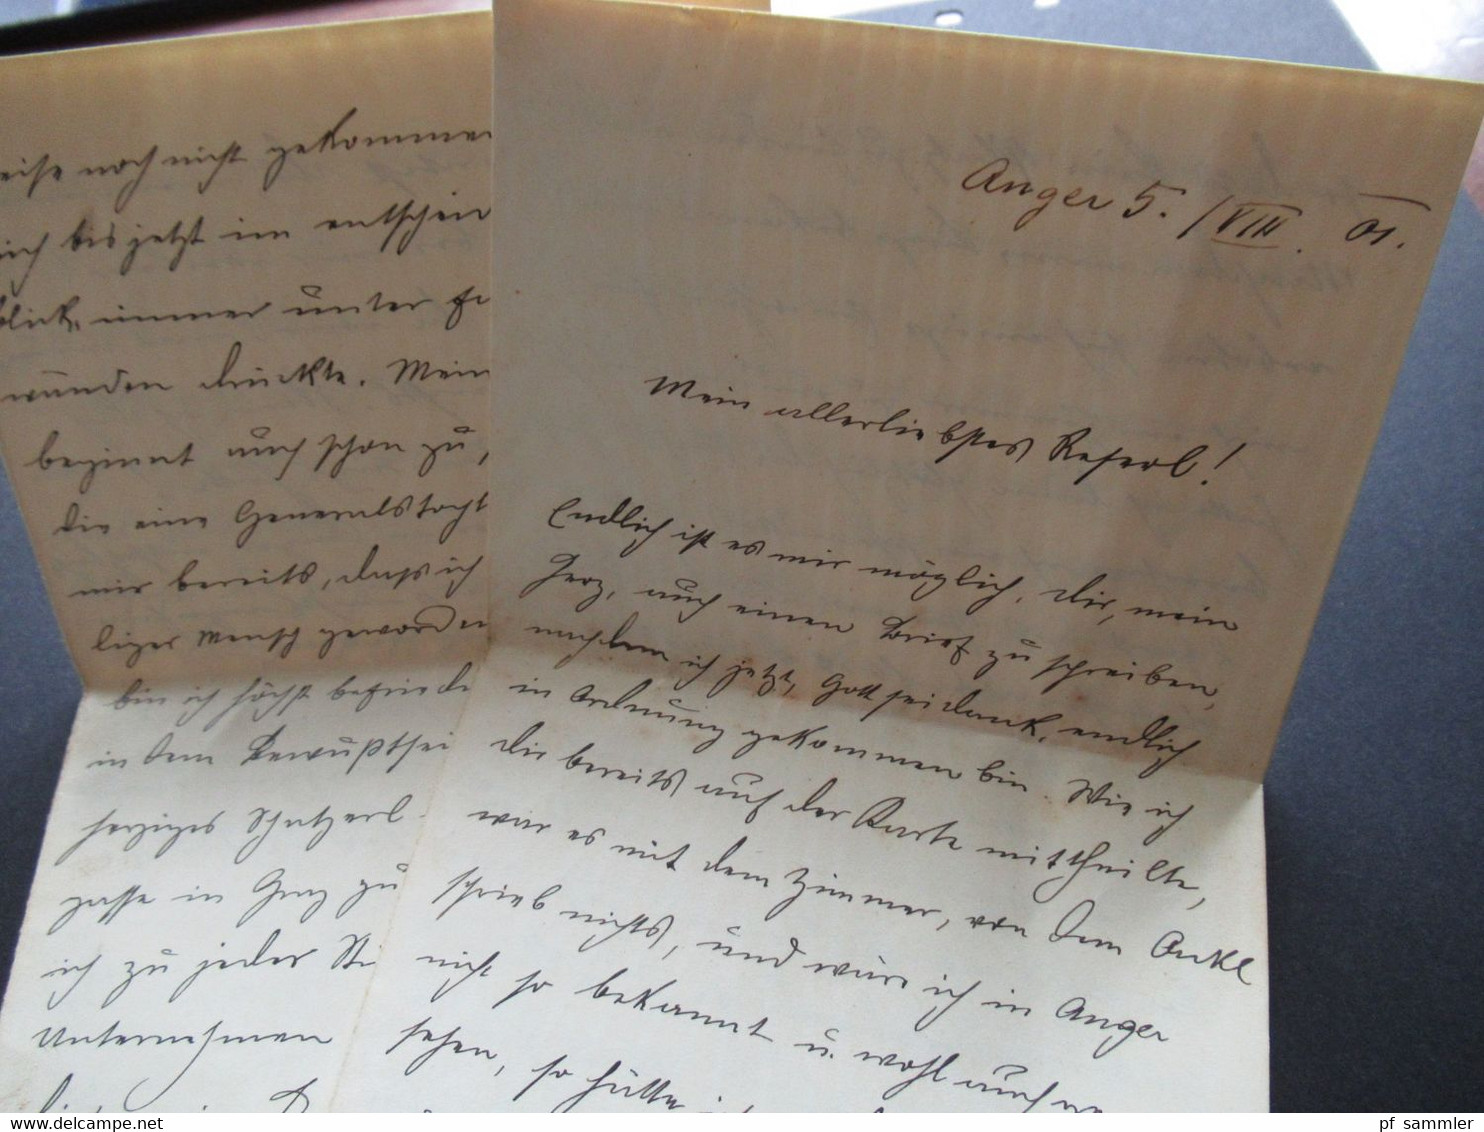 eise noch nicht gekommen
ich bis jetzt im entschein
blick, immer unter
wunden drückte. Mein
beginnt auch schon zu
die eine Generalstocht
mir bereits, dass ich
liger Mensch geworden
bin ich höchst befriede
in dem Bewußtsei
herziges Schatzerl
gasse in Graz zu
ich zu jeder
Unternehmen
Anger 5./VIII. 01.
Mein allerliebstes Reserl!
Endlich ist es mir möglich, Dir, mein
Herz, auch einen Brief zu schreiben,
nachdem ich jetzt, Gott sei dank, endlich
in Ordnung gekommen bin. Wie ich
Dir bereits auf der Karte mittheilte,
war es mit dem Zimmer, von dem Onkel
schrieb nichts, und wäre ich in Anger
nicht so bekannt u. wohl auch
sehen, so hätte
pf sammler